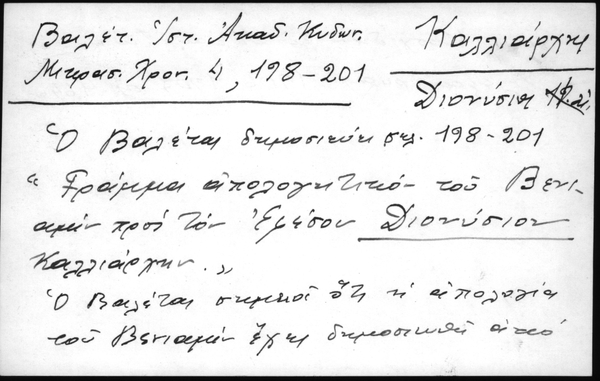 Βαλέτ. Ἱστ. Ἀκαδ. Κυδων.
Μικρασ. Χρον. 4, 198-201
Καλλιάρχης
Διονύσιος
Ὁ Βαλέτας δημοσιεύει σελ. 198-201
"Γράμμα ἀπολογητικὸ τοῦ Βενι-
αμὶν πρὸς τὸν Ἐφέσου Διονύσιον
Καλλιάρχην."
Ὁ Βαλέτας σημειοῖ ὅτι ἡ ἀπολογία
τοῦ Βενιαμὶν ἔχει δημοσιευθῆ ἀπὸ